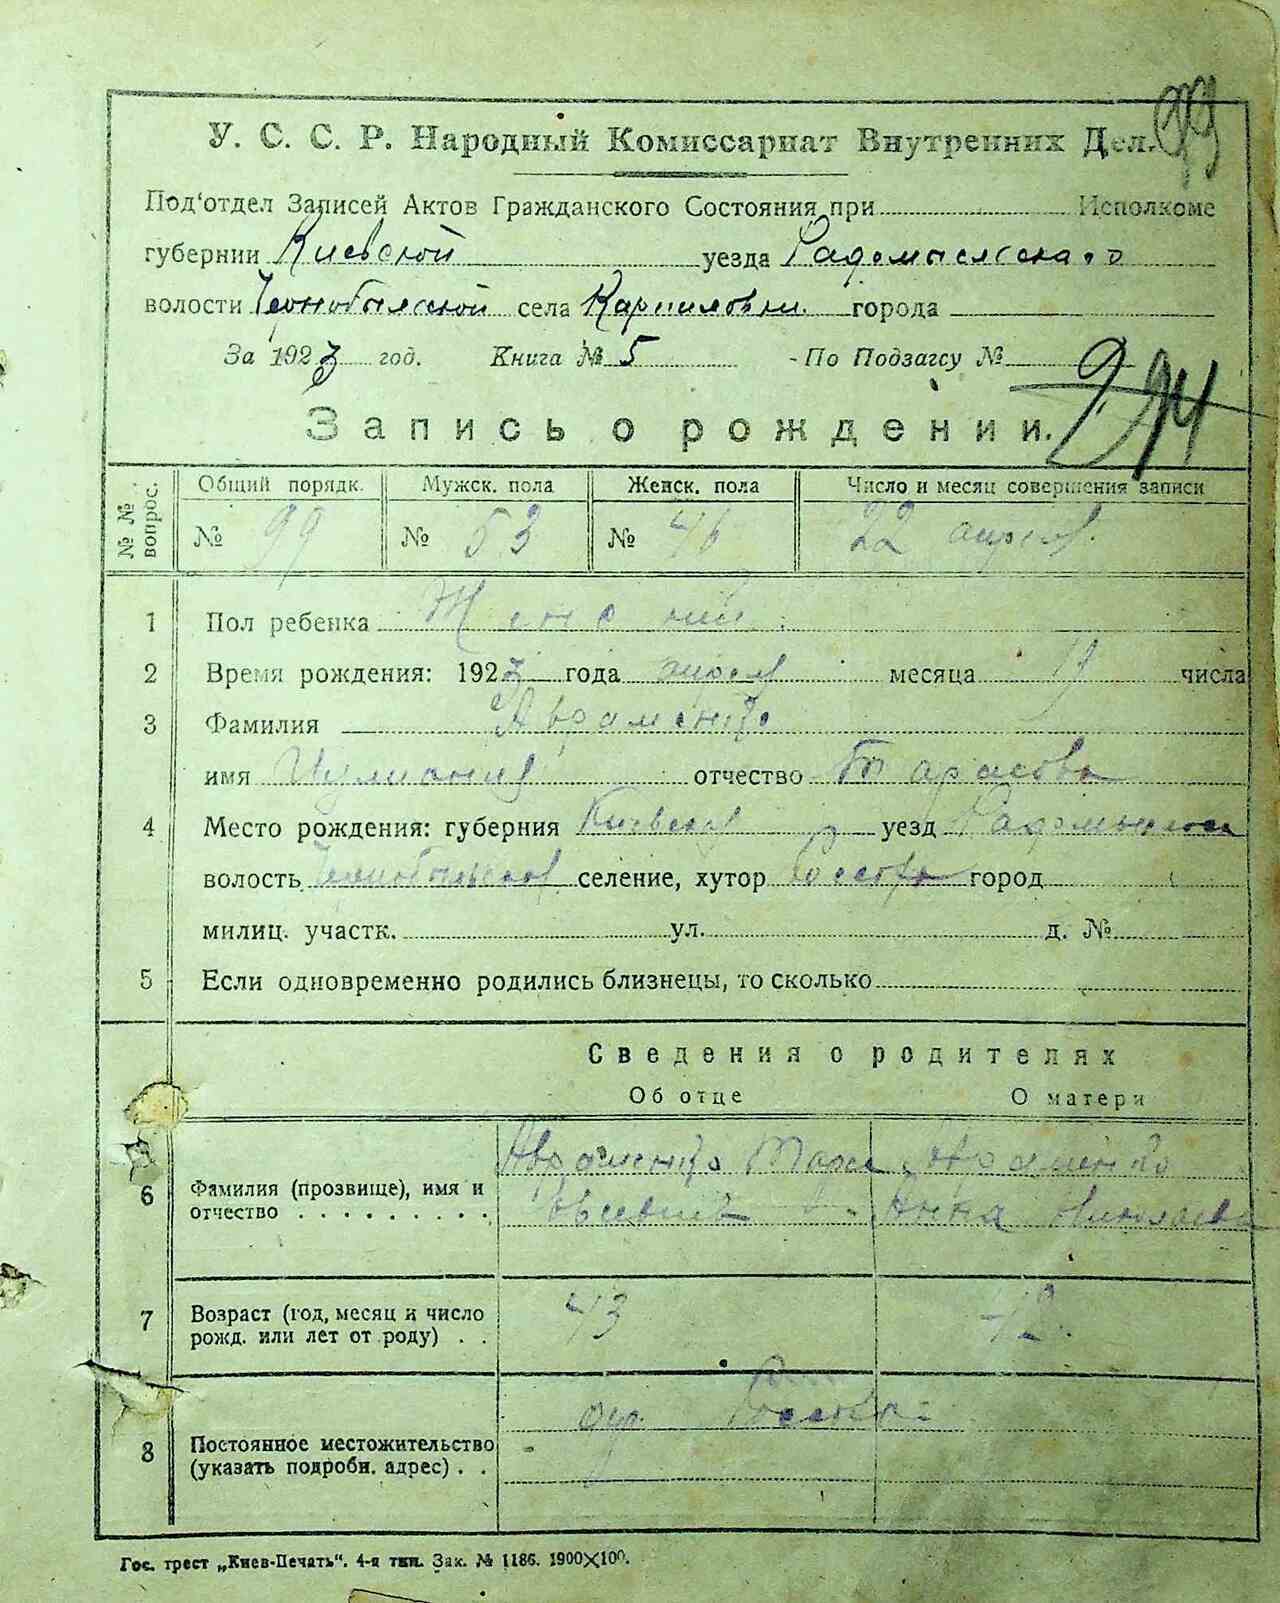 99
У. С. С. Р. Народный Комиссариат Внутренних Дел.
Под‘отдел Записей Актов Гражданского Состояния при Исполкоме
губернии Киевской уезда Радомысльского
волости Чернобыльской села Карпиловки города
За 1923 год. Книга № 5 - По Подзагсу № 294
Запись о рождении.
№ № вопрос. Общий порядк. Мужск. пола Женск. пола Число и месяц совершения записи
№ 99 № 53 № 46 22 апреля
1 Пол ребенка Женский
2 Время рождения: 1923 года месяца числа
3 Фамилия Авраменко
имя отчество Тарасовна
4 Место рождения: губерния Киевская уезд Радомысльск
волость Чернобыльская селение, хутор город
милиц. участк. ул. д. №
5 Если одновременно родились близнецы, то сколько
Сведения о родителях
Об отце О матери
6 Фамилия (прозвище), имя и отчество Авраменко Тарас Евсеевич Авраменко Анна Николаевна
7 Возраст (год, месяц и число рожд. или лет от роду) 43 42.
8 Постоянное местожительство (указать подробн. адрес)
Гос. трест „Киев-Печать“. 4-я тип. Зак. № 1186. 1900×100.